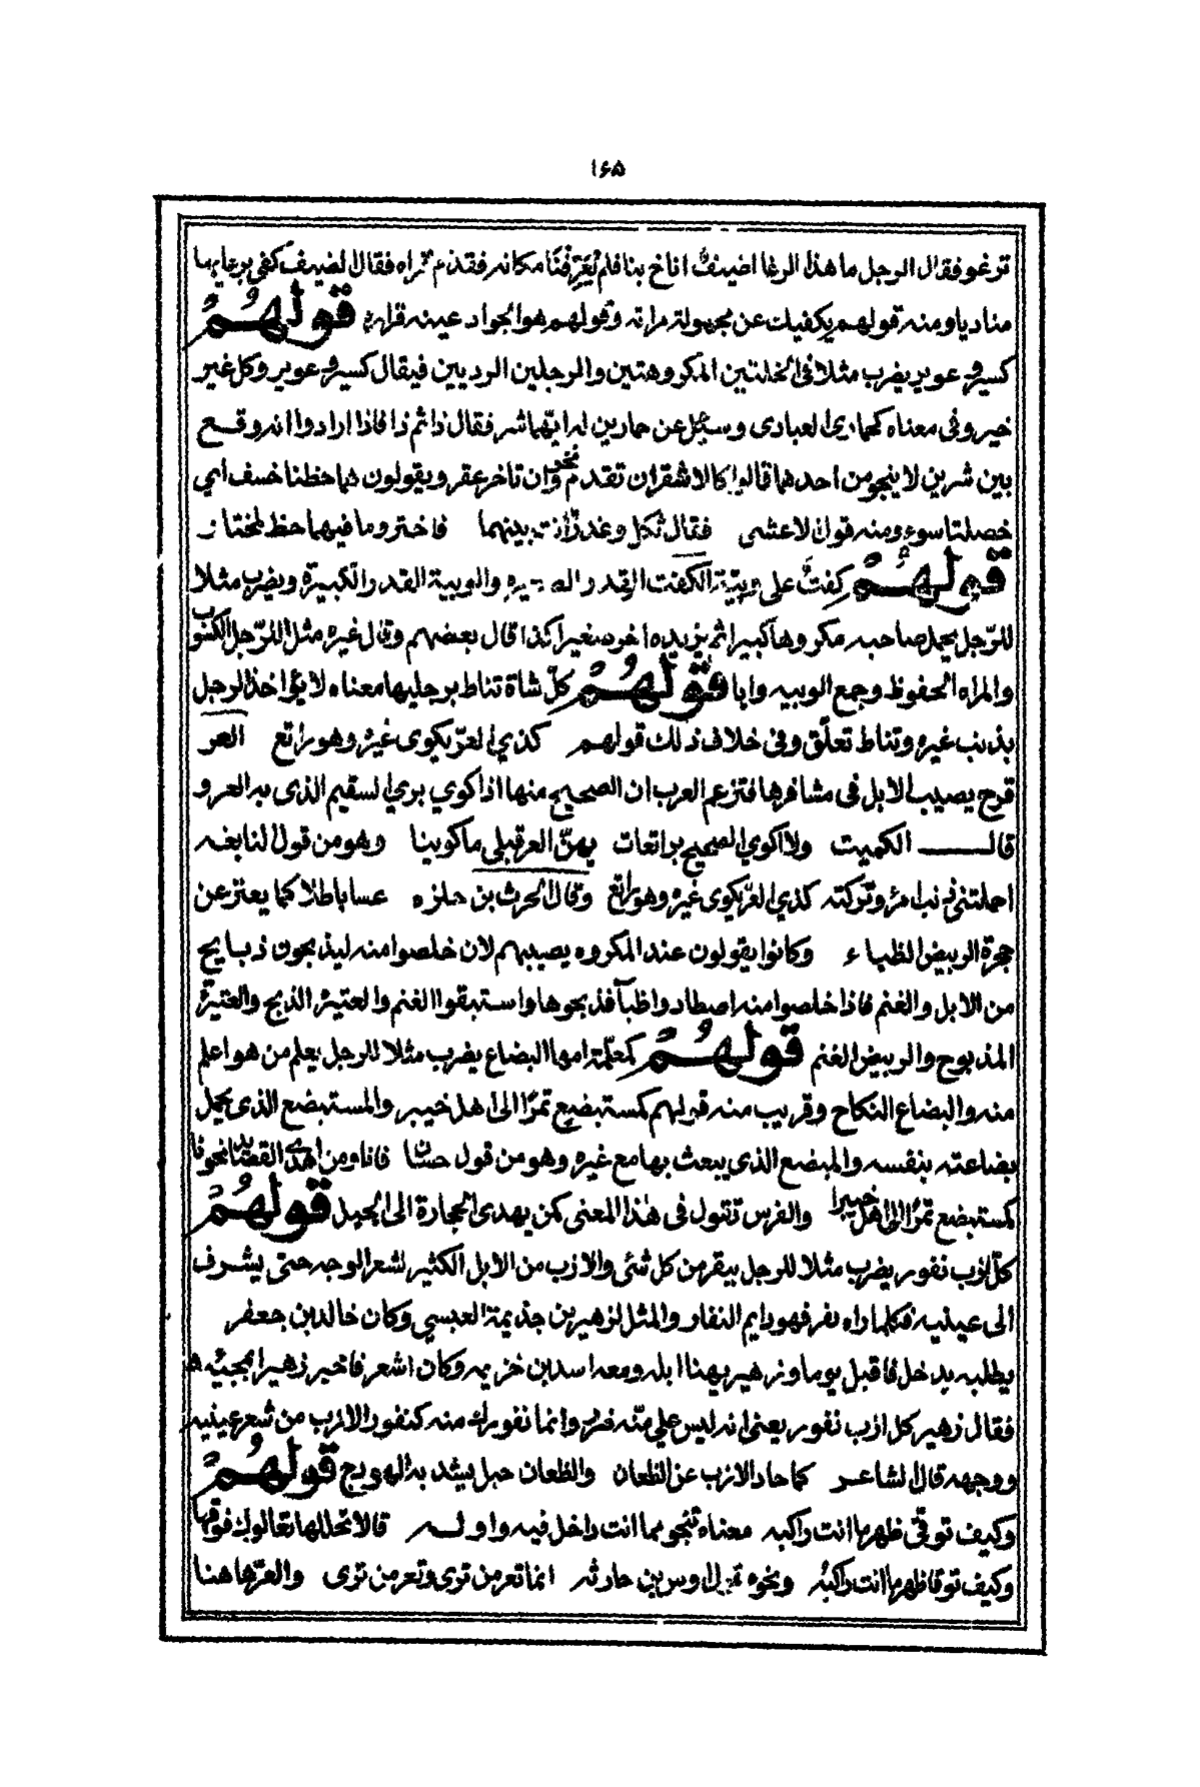 ١٦٥
ترغو فقال الرجل ما هذا الرغا اضيفٌ اناخ بنا فلم يُعَرِّفْنَا مكانه فقدم قراه فقال الضيف كفى برغايها
مناديا ومنه قولهم يكفيك عن مجهولة مراته وقولهم هو الجواد عينه فراره قولهم
كسير وعوير يضرب مثلا فى الخلتين المكروهتين والرجلين الرديين فيقال كسير وعوير وكل غير
خير وفى معناه كحمارى العبادى وسئل عن حمارين له ايهما شر فقال ذا ثم ذا فاذا ارادوا انه وقع
بين شرين لا ينجو من احدهما قالوا كالاشقر ان تقدم نحر وان تاخر عقر ويقولون هما خطتا خسف اى
خصلتا سوء ومنه قول الاعشى فقال ثكل وغدر انت بينهما فاختر وما فيهما حظ لمختار
قولهم كِفتٌ على وئيّة الكفت القدر الصغيره والوبية القدر الكبيرة ويضرب مثلا
للرّجل يحمل صاحبه مكروها كبيرا ثم يزيده اخر صغيرا كذا قال بعضهم وقال غيره مثل الرّجل الكسوب
والمراه الحفوظ وجمع الوبيه وايا قولهم كلّ شاة تناط برجليها معناه لا يؤاخذ الرجل
بذنب غيره وتناط تعلّق وفى خلاف ذلك قولهم كذي العرّ يكوى غيره وهو راتع العر
قرح يصيب الابل فى مشافرها فتزعم العرب ان الصحيح منها اذا كوي بري السقيم الذى به العر و
قال الكميت ولا اكوي الصحيح براتعات بهنّ العر قبلى ما كوينا وهو من قول النابغه
احملتنى ذنب امرء وتركته كذي العرّ يكوى غيره وهو راتع وقال الحرث بن حلزه عسا باطلا كما يعتر عن
حجرة الربيض الظباء وكانوا يقولون عند المكروه يصيبهم لان خلصوا منه ليذبحون ذبايح
من الابل والغنم فاذا خلصوا منه اصطادوا ظبآ فذبحوها واستبقوا الغنم والعتيرة الذبح والعتيرة
المذبوح والربيض الغنم قولهم كمعلّمة امها البضاع يضرب مثلا للرجل يعلم من هو اعلم
منه والبضاع النكاح وقريب منه قولهم كمستبضع تمرًا الى اهل خيبر والمستبضع الذى يحمل
بضاعته بنفسه والمبضع الذى يبعث بها مع غيره وهو من قول حسان فانا ومن اهدى القصايد نحونا
كمستبضع تمرًا الى اهل خيبرا والفرس تقول فى هذا المعنى كمن يهدى الحجارة الى الجبل قولهم
كلّ ازب نفور يضرب مثلا للرجل ينفر من كل شئى والازب من الابل الكثير لشعر الوجه حتى يشرف
الى عينيه فكلما راه نفر فهو دايم النفار والمثل لزهير بن جذيمة العبسي وكان خالد بن جعفر
يطلبه بدخل فاقبل يوما وزهير يهنا ابله ومعه اسد بن خزيمه وكان اشعر فاخبر زهيرا بمجيئه
فقال زهير كل ازب نفور يعنى انه ليس علي منّه ضرر وانما نفورك منه كنفور الازب من شعر عينيه
ووجهه قال الشاعر كما حاد الازب عن الظعان والظعان حبل يشد به الهودج قولهم
وكيف توقى ظهر ما انت راكبه معناه تنجو مما انت داخل فيه واوله قالا تحللها تعالوك فوقها
وكيف توقا ظهر ما انت راكبُه ونحوه قول اوس بن حارثه انما تعز من ترى وتعز من ترى والعزّ هاهنا